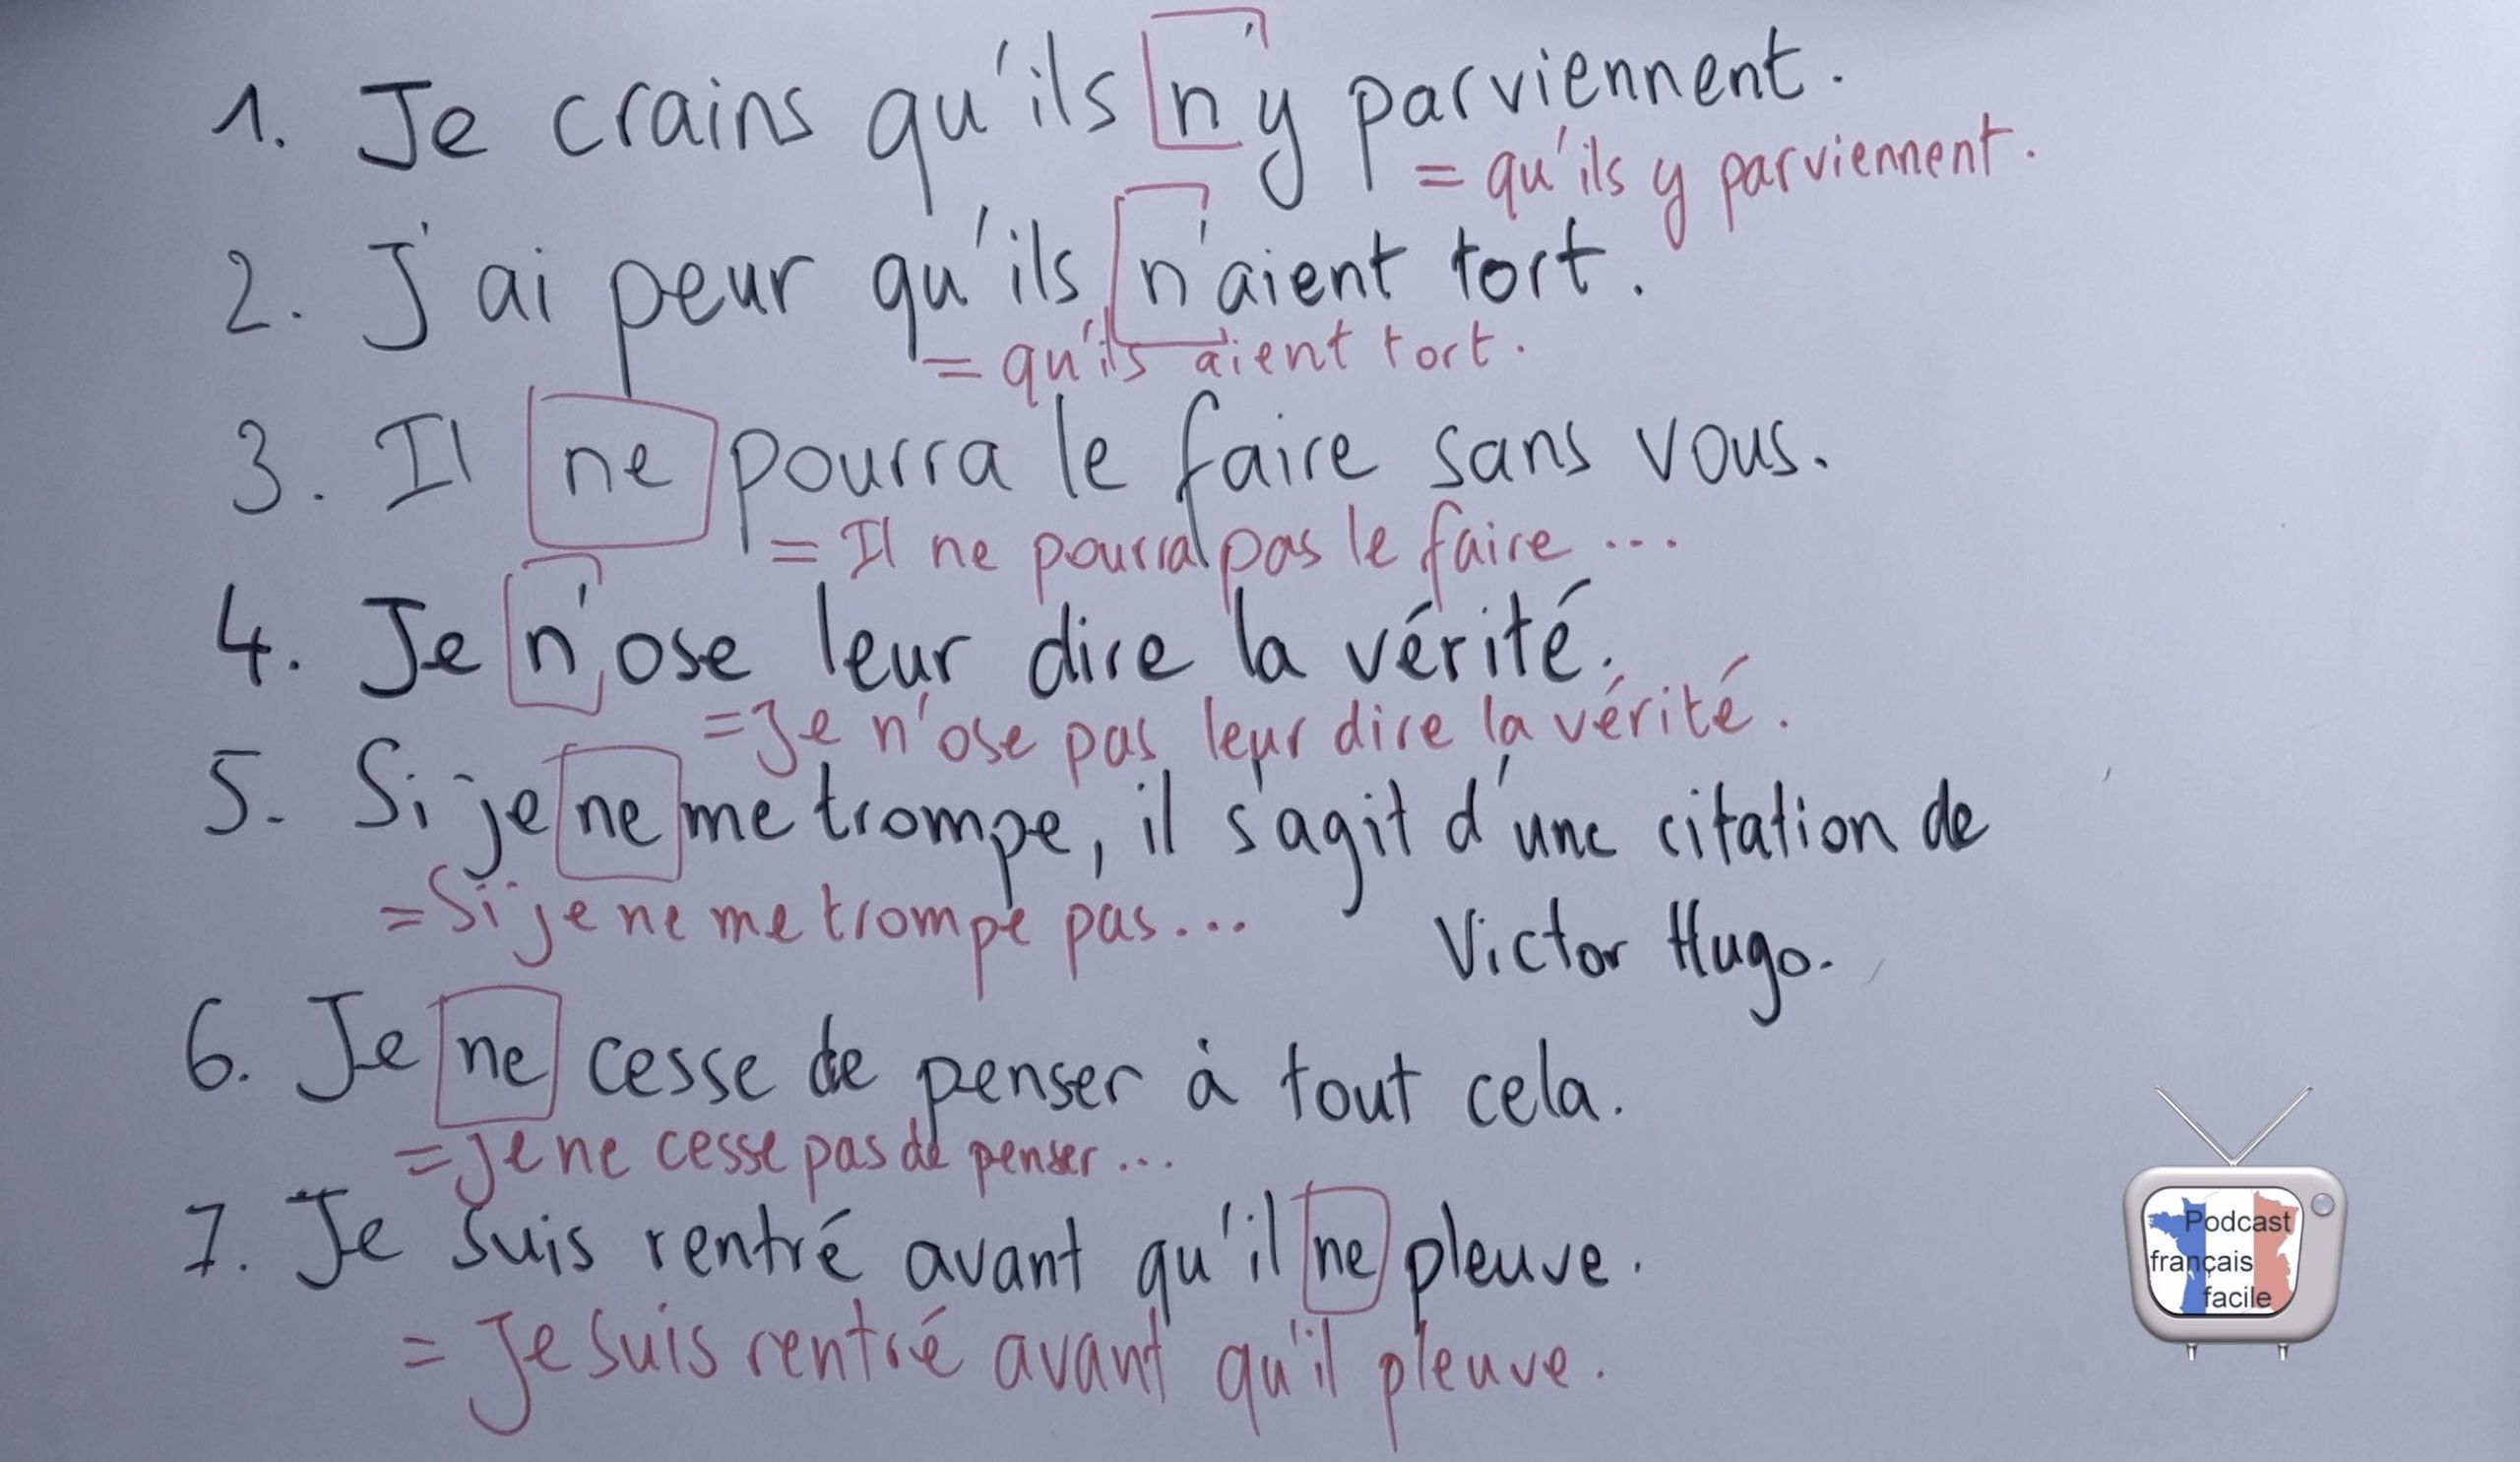 1. Je crains qu'ils n'y parviennent.
= qu'ils y parviennent.
2. J'ai peur qu'ils n'aient tort.
= qu'ils aient tort.
3. Il ne pourra le faire sans vous.
= Il ne pourra pas le faire ...
4. Je n'ose leur dire la vérité.
= Je n'ose pas leur dire la vérité.
5. Si je ne me trompe, il s'agit d'une citation de
= Si je ne me trompe pas... Victor Hugo.
6. Je ne cesse de penser à tout cela.
= Je ne cesse pas de penser ...
7. Je suis rentré avant qu'il ne pleuve.
= Je suis rentré avant qu'il pleuve.
Podcast
français
facile